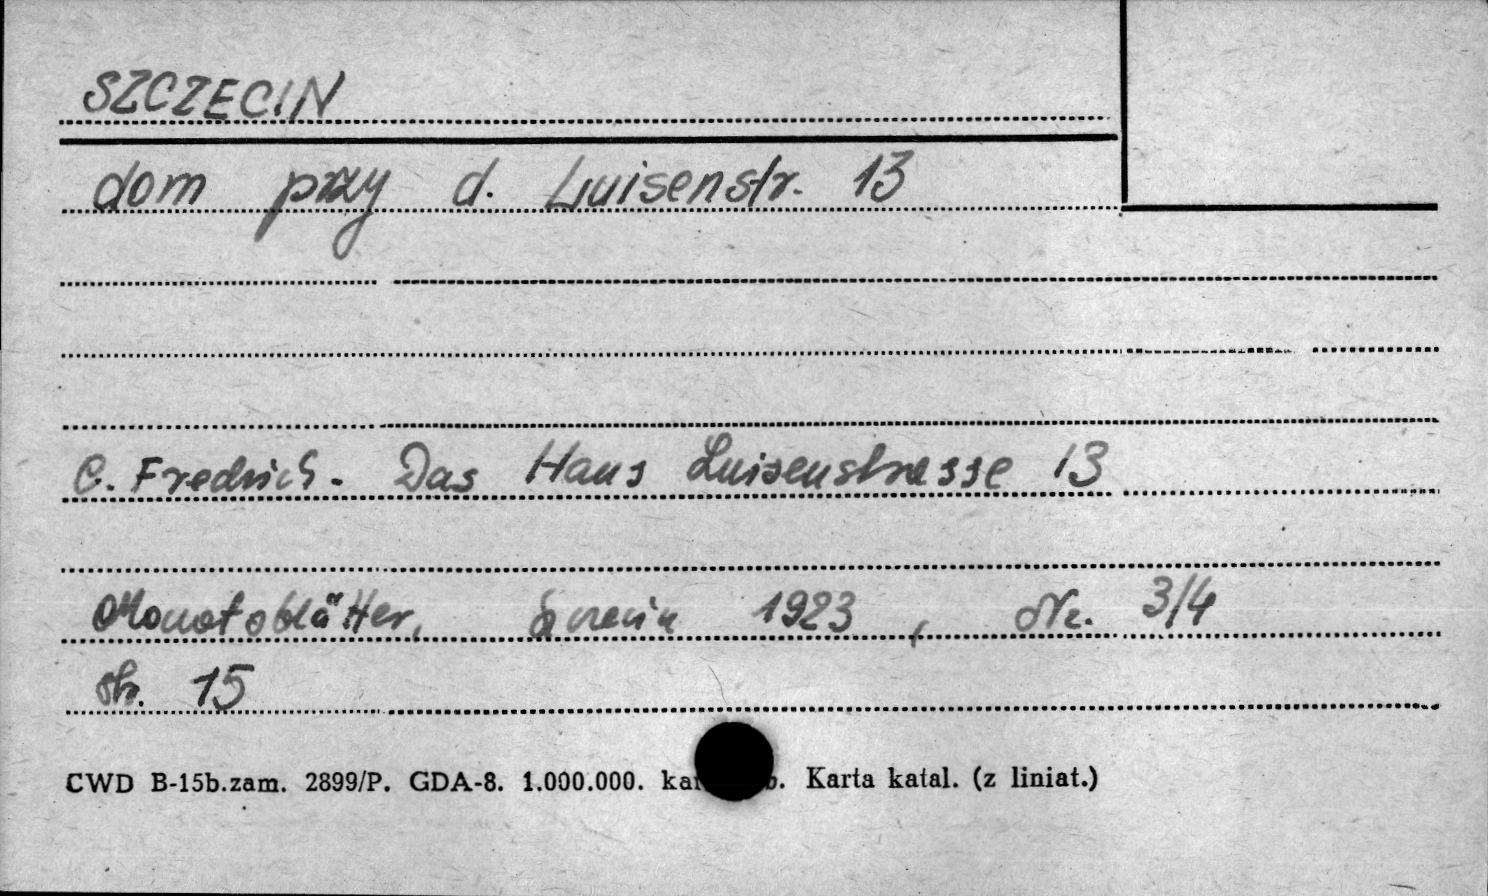 SZCZECIN
dom przy d. Luisenstr. 13
C. Fredrich. Das Haus Luisenstrasse 13
Monatsblätter, Szczecin 1923, Nr. 3/4
str. 15
CWD B-15b.zam. 2899/P. GDA-8. 1.000.000. Karta katal. (z liniat.)